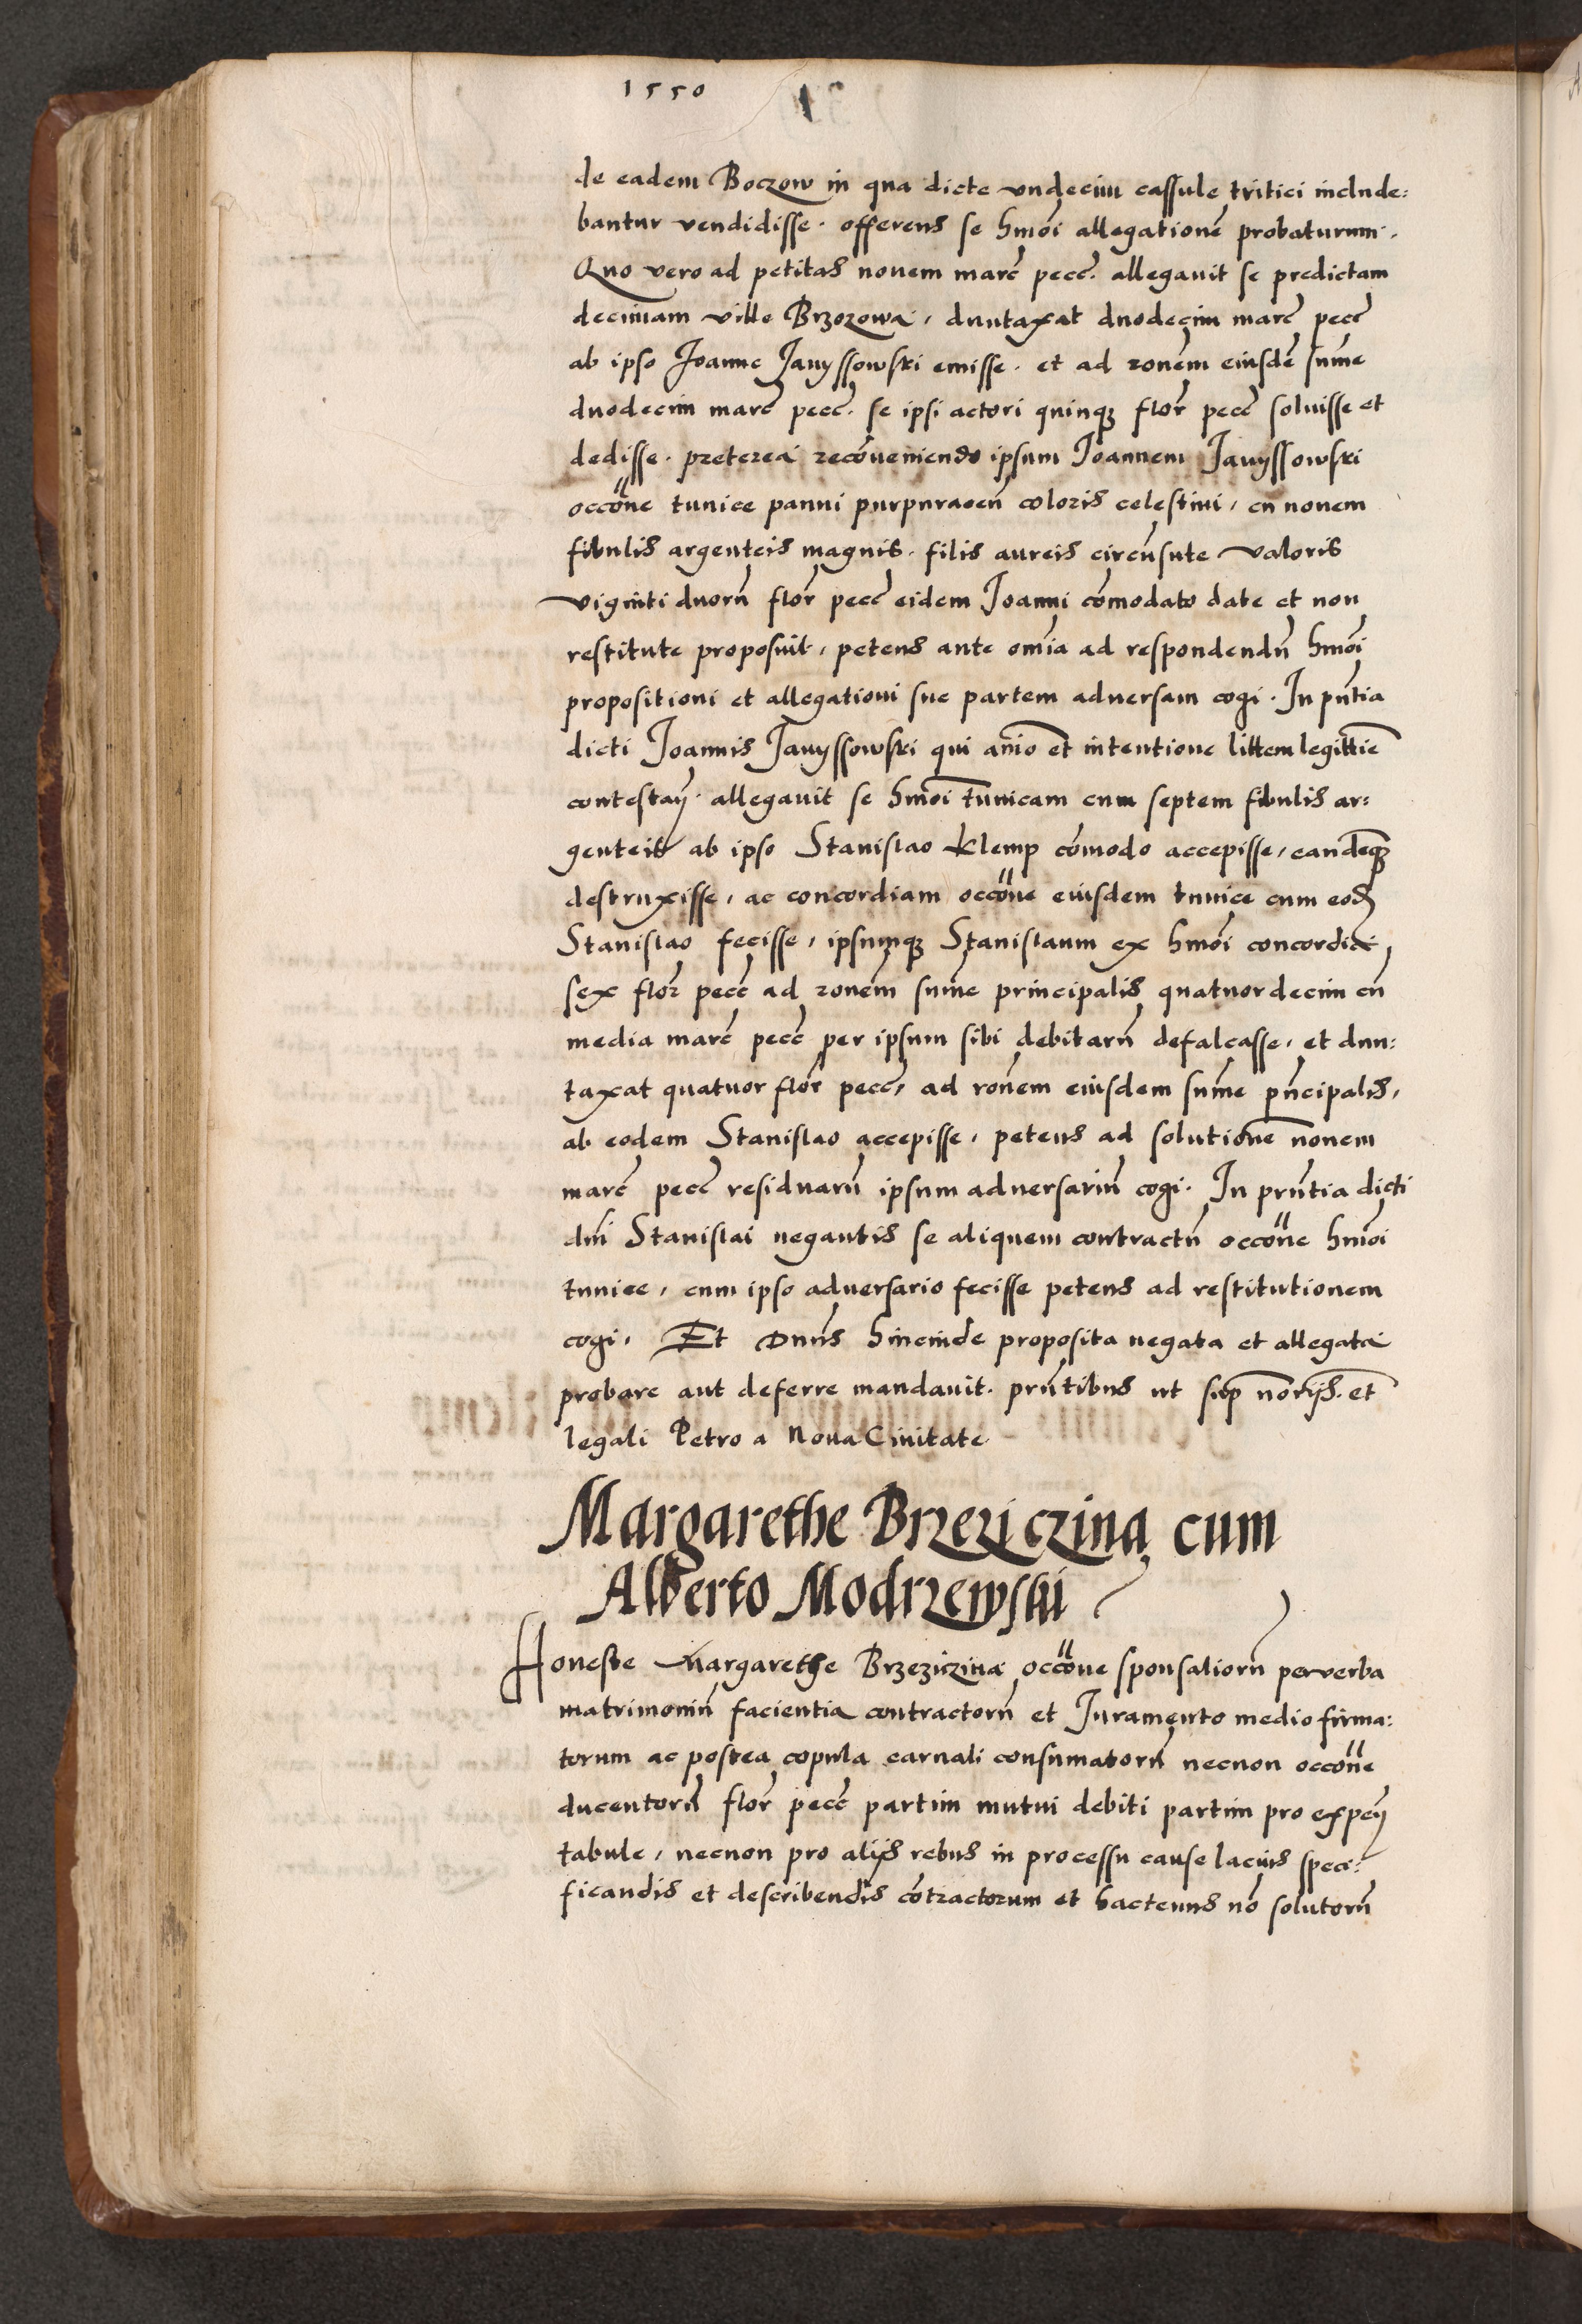 1550
de eadem Boczow in qua dicte vndecim cassule tritici include:
bantur vendidisse. offerens se hmoi allegationē probaturum.
Quo vero ad petitas nouem marc̄ pecc̄. allegauit se predictam
decimam ville Brzozowa, duntaxat duodecim marc̄ pecc̄
ab ipso Joanne Janyssowski emisse. et ad ronem eiusdē sume
duodecim marc̄ pecc̄. se ipsi actori quinqꝫ flor̄ pecc̄ soluisse et
dedisse. preterea recōueniendo ipsum Joannem Janyssowski
occōne tunice panni purpuracen̄ coloris celestini, cū nouem
fibulis argenteis magnis. filis aureis circūsute valoris
viginti duorū flor̄ pecc̄ eidem Joanni cōmodato date et non
restitute proposuit, petens ante omīa ad respondendū hmōi
propositioni et allegationi sue partem aduersam cogi. In pn̄tia
dicti Joannis Janyssowski qui anīo et intentione littem legittīe
contestan̄. allegauit se hmōi tunicam cum septem fibulis ar:
genteis ab ipso Stanislao Klemp cōmodo accepisse, eandēqꝫ
destruxisse, ac concordiam occōne eiusdem tunice cum eod̄
Stanislao fecisse, ipsumqꝫ Stanislaum ex hmōi concordia
sex flor̄ pecc̄ ad ronem sum̄e principalis quatuordecim cū
media marc̄ pecc̄ per ipsum sibi debitarū defalcasse, et dun:
taxat quatuor flor̄ pecc̄, ad ronem eiusdem sum̄e pn̄cipalis,
ab eodem Stanislao accepisse, petens ad solutionē nouem
marc̄ pecc̄ residuarū ipsum aduersariū cogi. In prn̄tia dicti
dnī Stanislai negantis se aliquem contractū occōne hmōi
tunice, cum ipso aduersario fecisse petens ad restitutionem
cogi. Et Dnūs hincinde proposita negata et allegata
probare aut deferre mandauit. prn̄tibus ut sup̄ norijs. et
legali Petro a Noua Ciuitate
Margarethe Brzeziczina cum
Alberto Modrzewski
Honeste Margarethe Brzeziczina occōne sponsaliorū per verba
matrimoniū facientia contractorū et Juramento medio firma:
torum ac postea copula carnali consumatorū necnon occōne
ducentorū flor̄ pecc̄ partim mutui debiti partim pro expen̄
tabule, necnon pro alijs rebus in processu cause lacius speci:
ficandis et describendis cōtractorum et hactenus nō solutorū